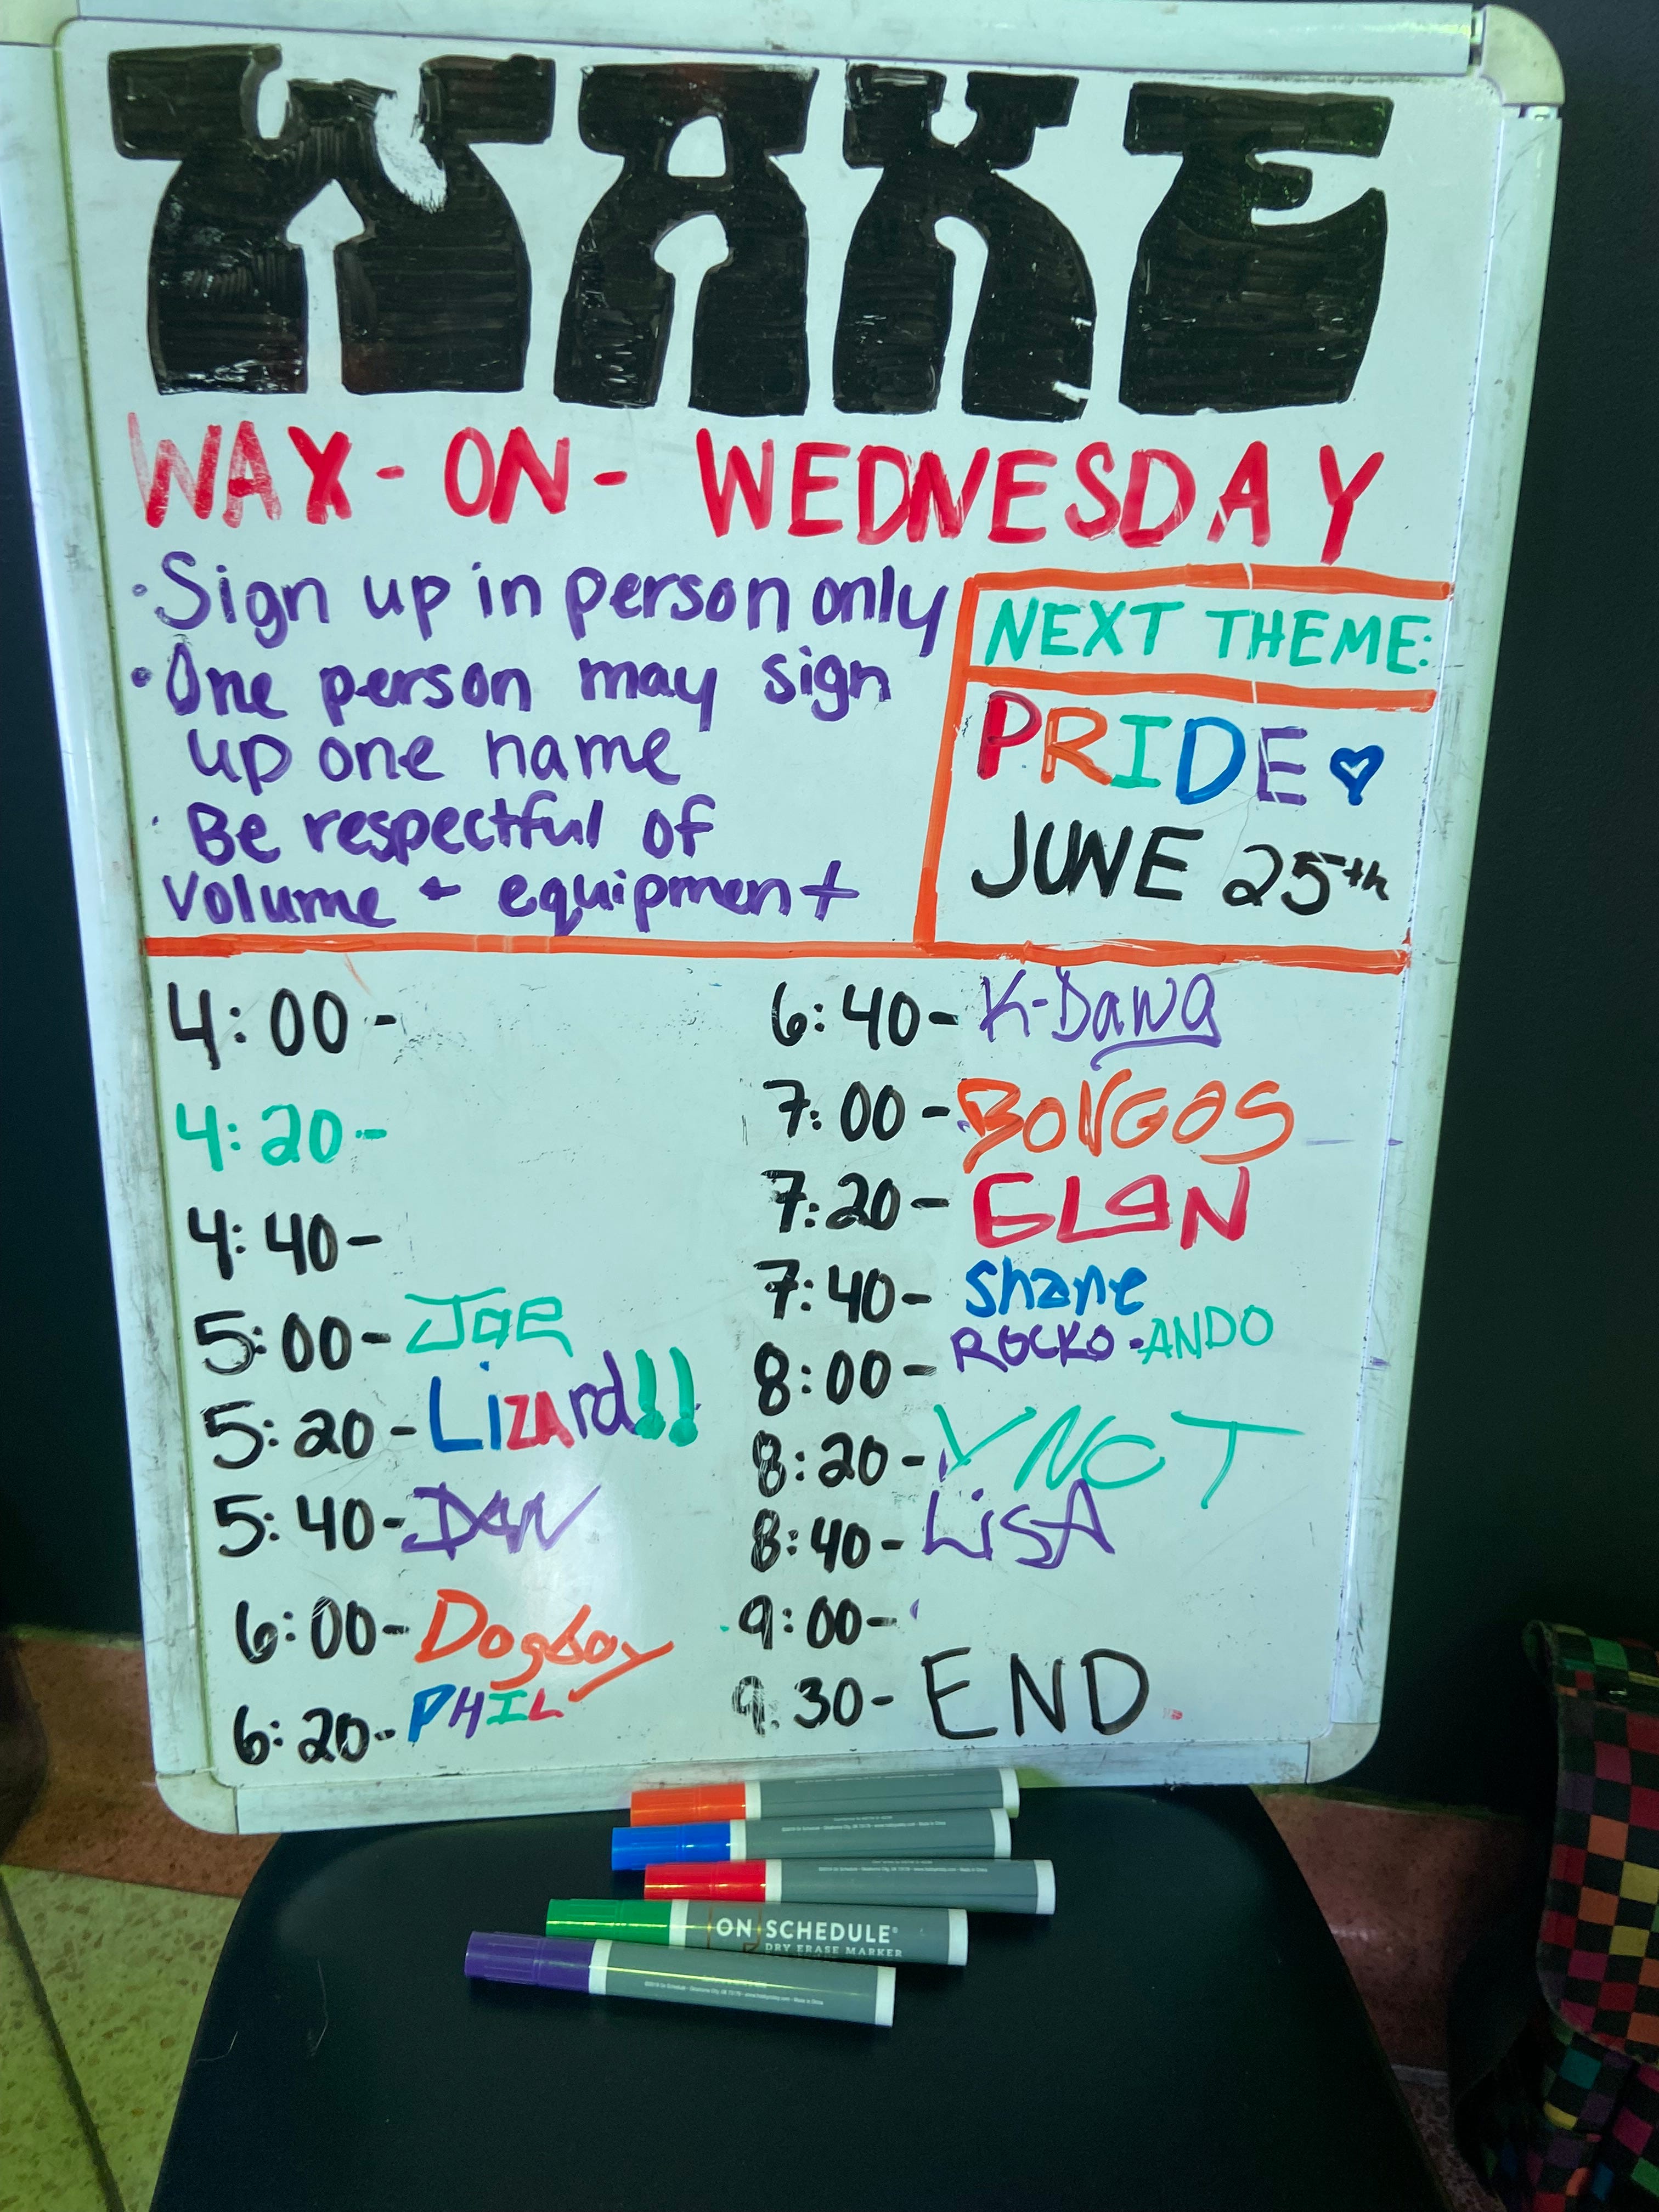 WAKE
WAX-ON-WEDNESDAY
· Sign up in person only
· One person may sign
up one name
· Be respectful of
Volume + equipment
NEXT THEME:
PRIDE ♡
JUNE 25th
4:00-
4:20-
4:40-
5:00- Joe
5:20- Lizard!!
5:40- Dan
6:00- Dogboy
6:20- PHIL
6:40- K-Dawg
7:00- BONGOS
7:20- GLEN
7:40- Shane
8:00- ROCKO · ANDO
8:20- YNOT
8:40- LiSA
9:00-
9:30- END
ON SCHEDULE®
DRY ERASE MARKER